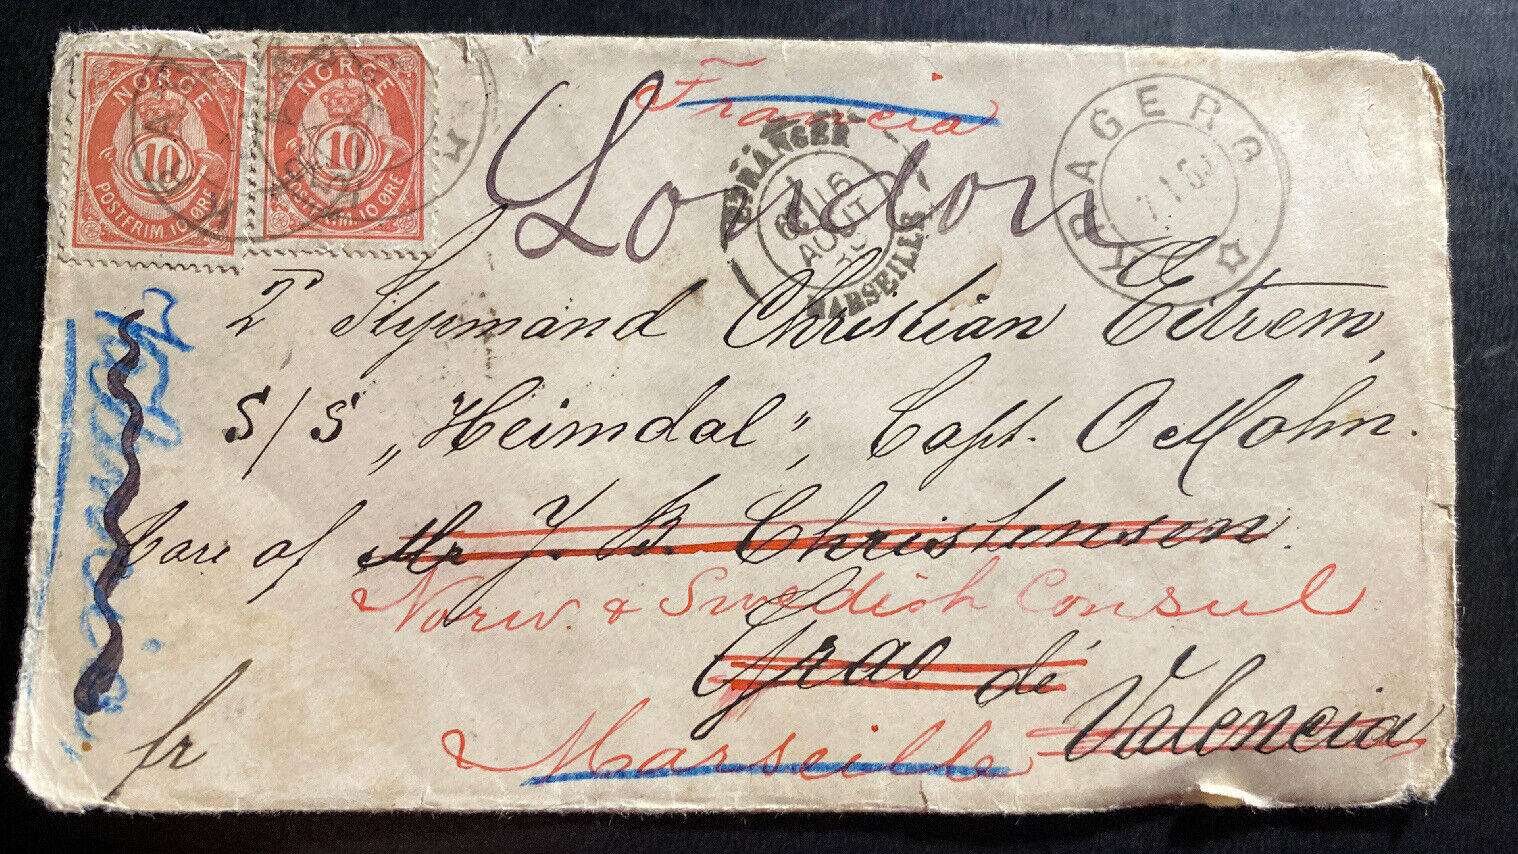 NORGE
10
POSTFRIM. 10 ØRE
NORGE
10
POSTFRIM. 10 ØRE
Francia
London
ETRANGER
16
AOUT
MARSEILLE
KRAGERØ
2' Styrmand Christian Eitrem,
S/S „Heimdal", Capt. O Mohn.
Care of Mr J. B. Christensen.
Norw. & Swedish Consul
Grao de Valencia
Marseille
fr